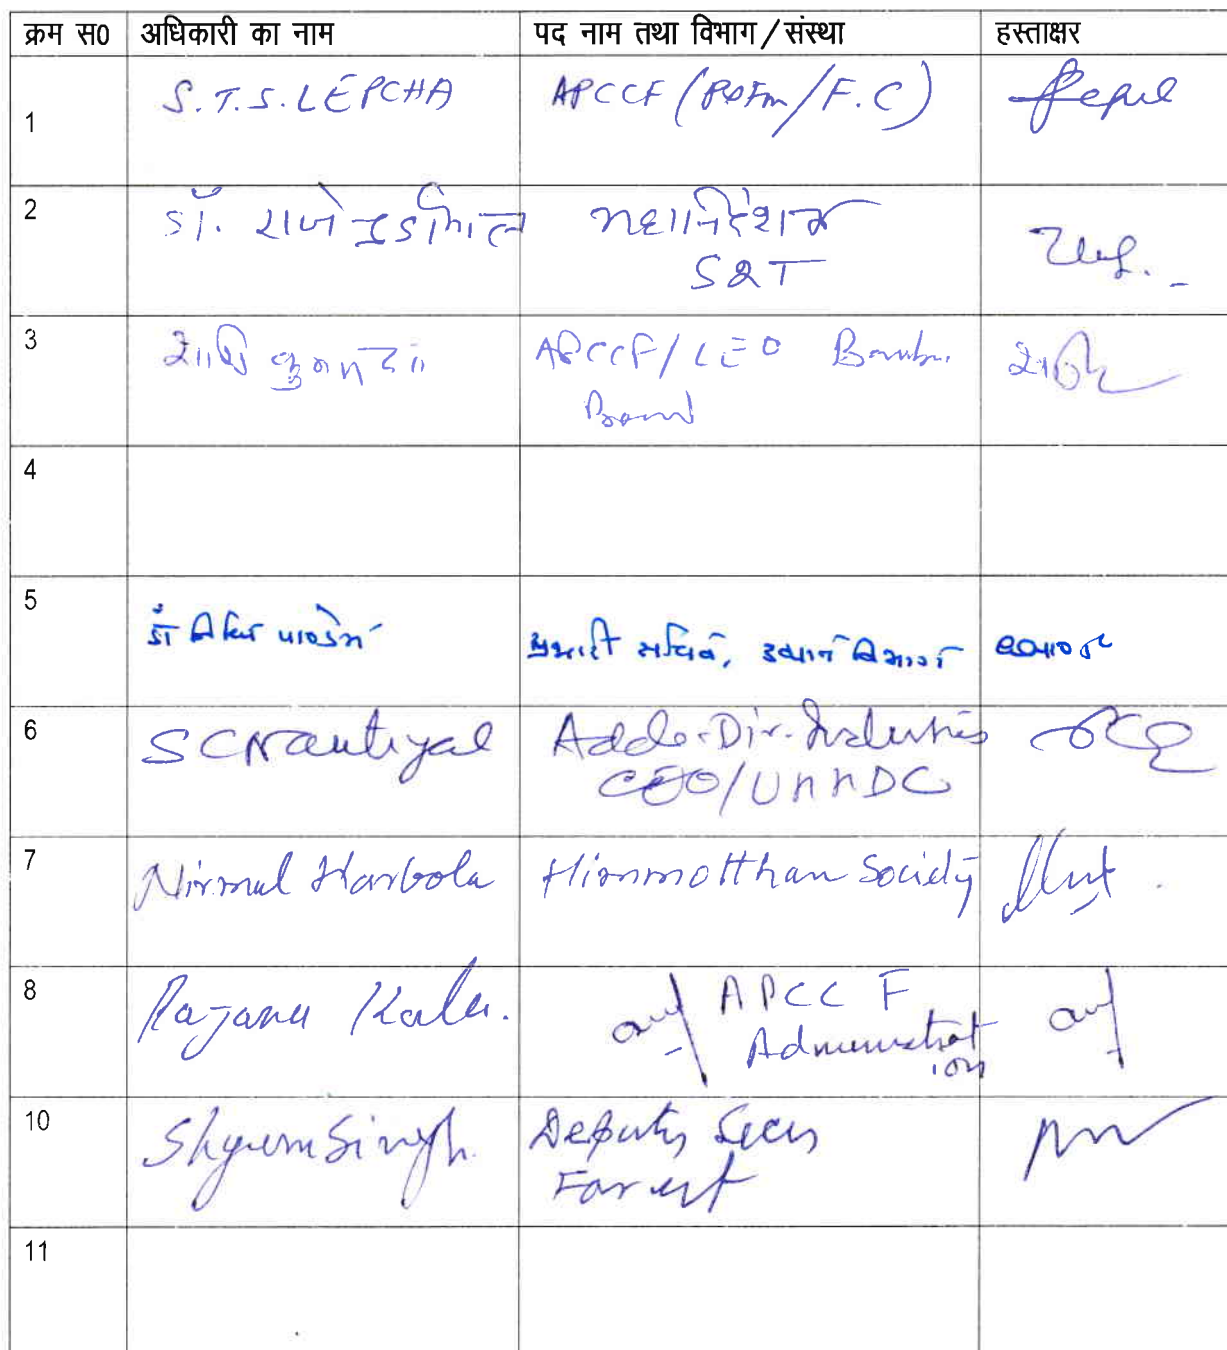 क्रम स0 अधिकारी का नाम पद नाम तथा विभाग/संस्था हस्ताक्षर
1 S.T.S. LEPCHA APCCF (PSFm/F.C)
2 डॉ. राजेन्द्र डोभाल महानिदेशक
S&T
3 APCCF/CEO Bamboo
Board
4
5 डॉ पाण्डेय प्रभारी सचिव, उद्यान विभाग
6 SCNautiyal Addl.Dir.Industries
CEO/UHHDC
7 Nirmal Harbola Himmotthan Society
8 Ranjana Kala. APCCF
Administrat
ion
10 Shyam Singh Deputy Secy
Forest
11